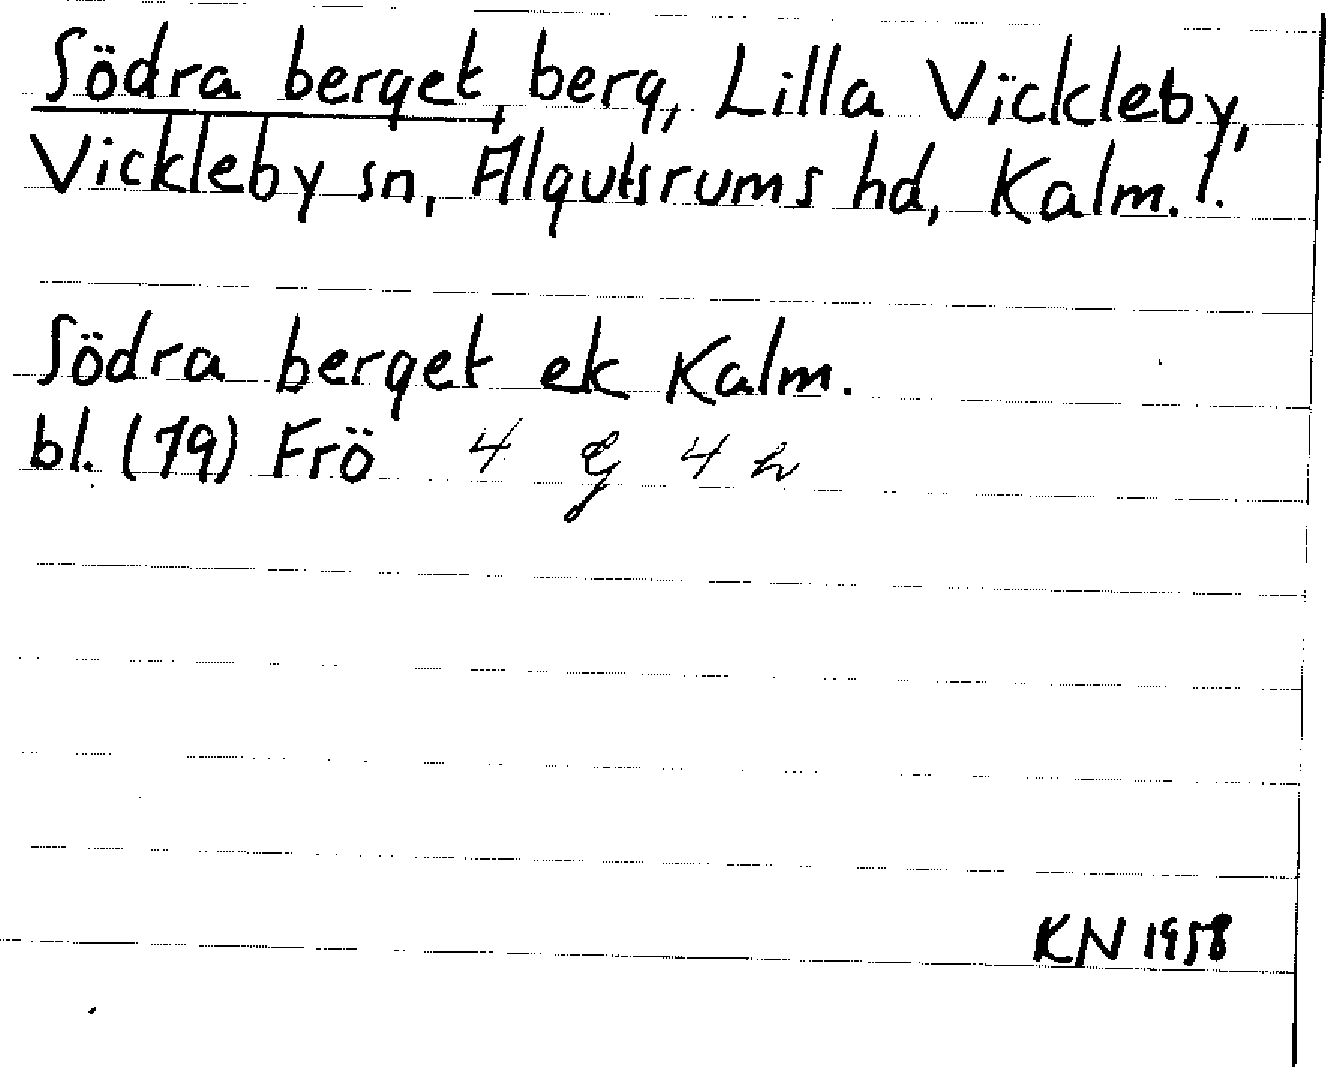 Södra berget, berg, Lilla Vickleby,
Vickleby sn, Algutsrums hd, Kalm. l.
Södra berget ek Kalm.
bl. (79) Frö 4 g 4 h
KN 1958